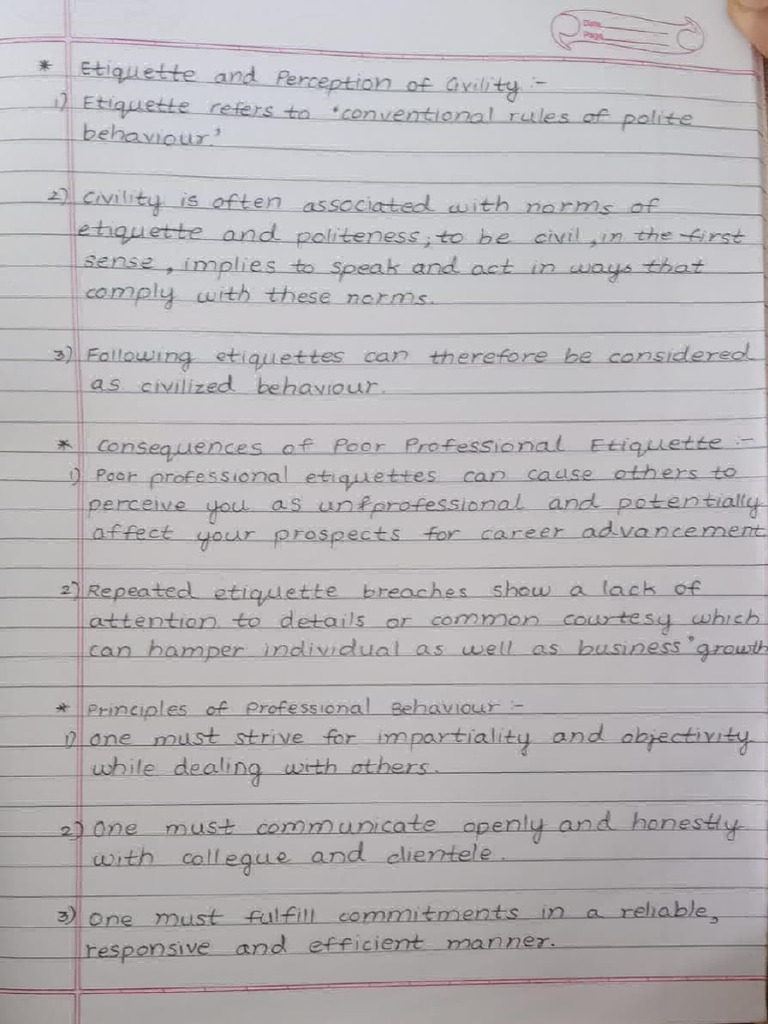 Date
Page
* Etiquette and Perception of Civility :-
1) Etiquette refers to 'conventional rules of polite
behaviour.'
2) Civility is often associated with norms of
etiquette and politeness; to be civil, in the first
sense, implies to speak and act in ways that
comply with these norms.
3) Following etiquettes can therefore be considered
as civilized behaviour.
* Consequences of Poor Professional Etiquette :-
1) Poor professional etiquettes can cause others to
perceive you as unprofessional and potentially
affect your prospects for career advancement
2) Repeated etiquette breaches show a lack of
attention to details or common courtesy which
can hamper individual as well as business growth
* Principles of Professional Behaviour :-
1) One must strive for impartiality and objectivity
while dealing with others.
2) One must communicate openly and honestly
with collegue and clientele.
3) One must fulfill commitments in a reliable,
responsive and efficient manner.